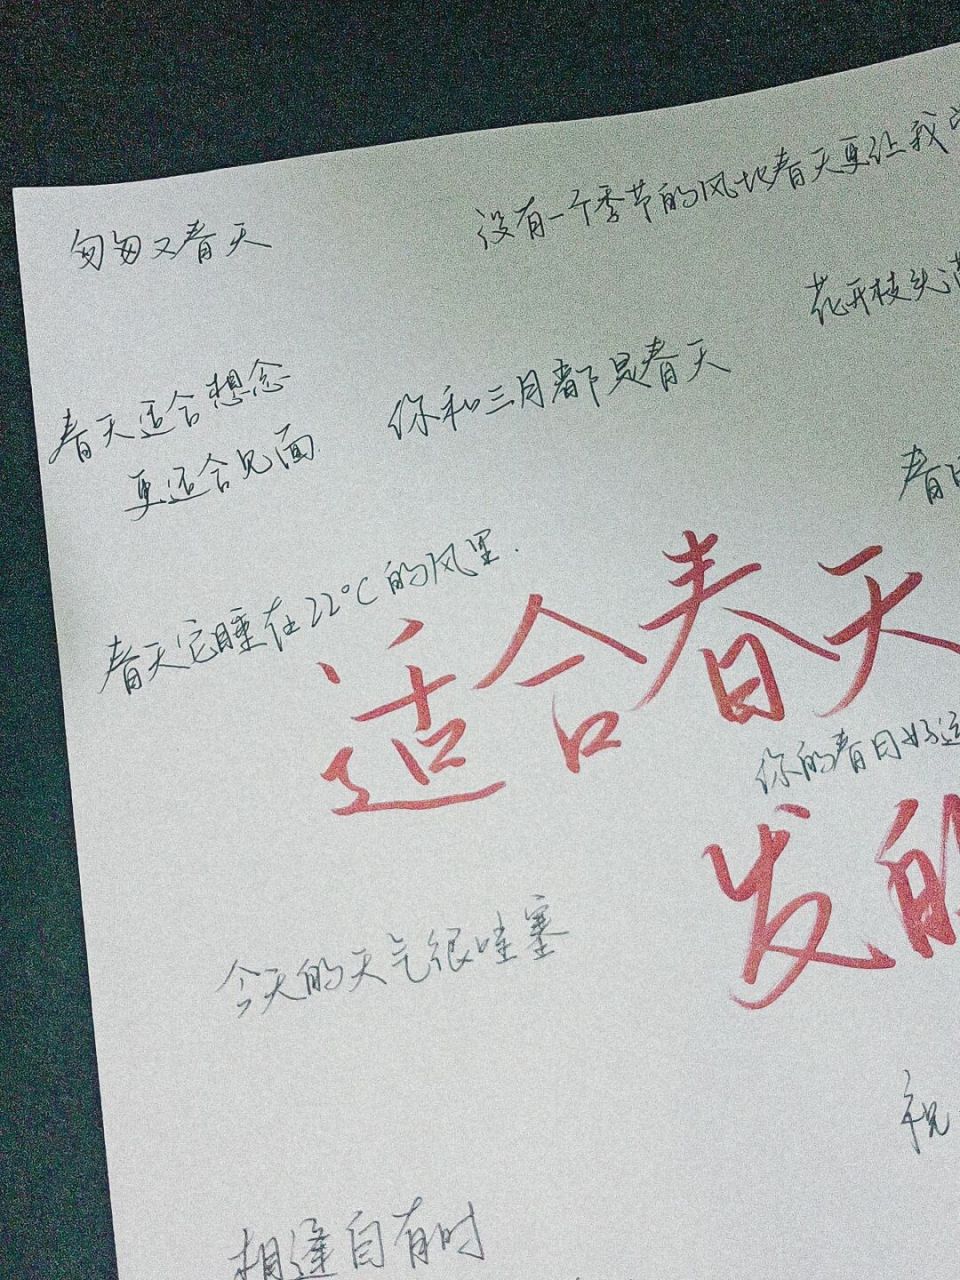 匆匆又春天
没有一个季节的风比春天更让我
花开枝头
春天适合想念
更适合见面
你和三月都是春天
春日
春天它睡在22°C的风里.
适合春天
你的春日好运
发的
今天的天气很哇塞
祝
相逢自有时